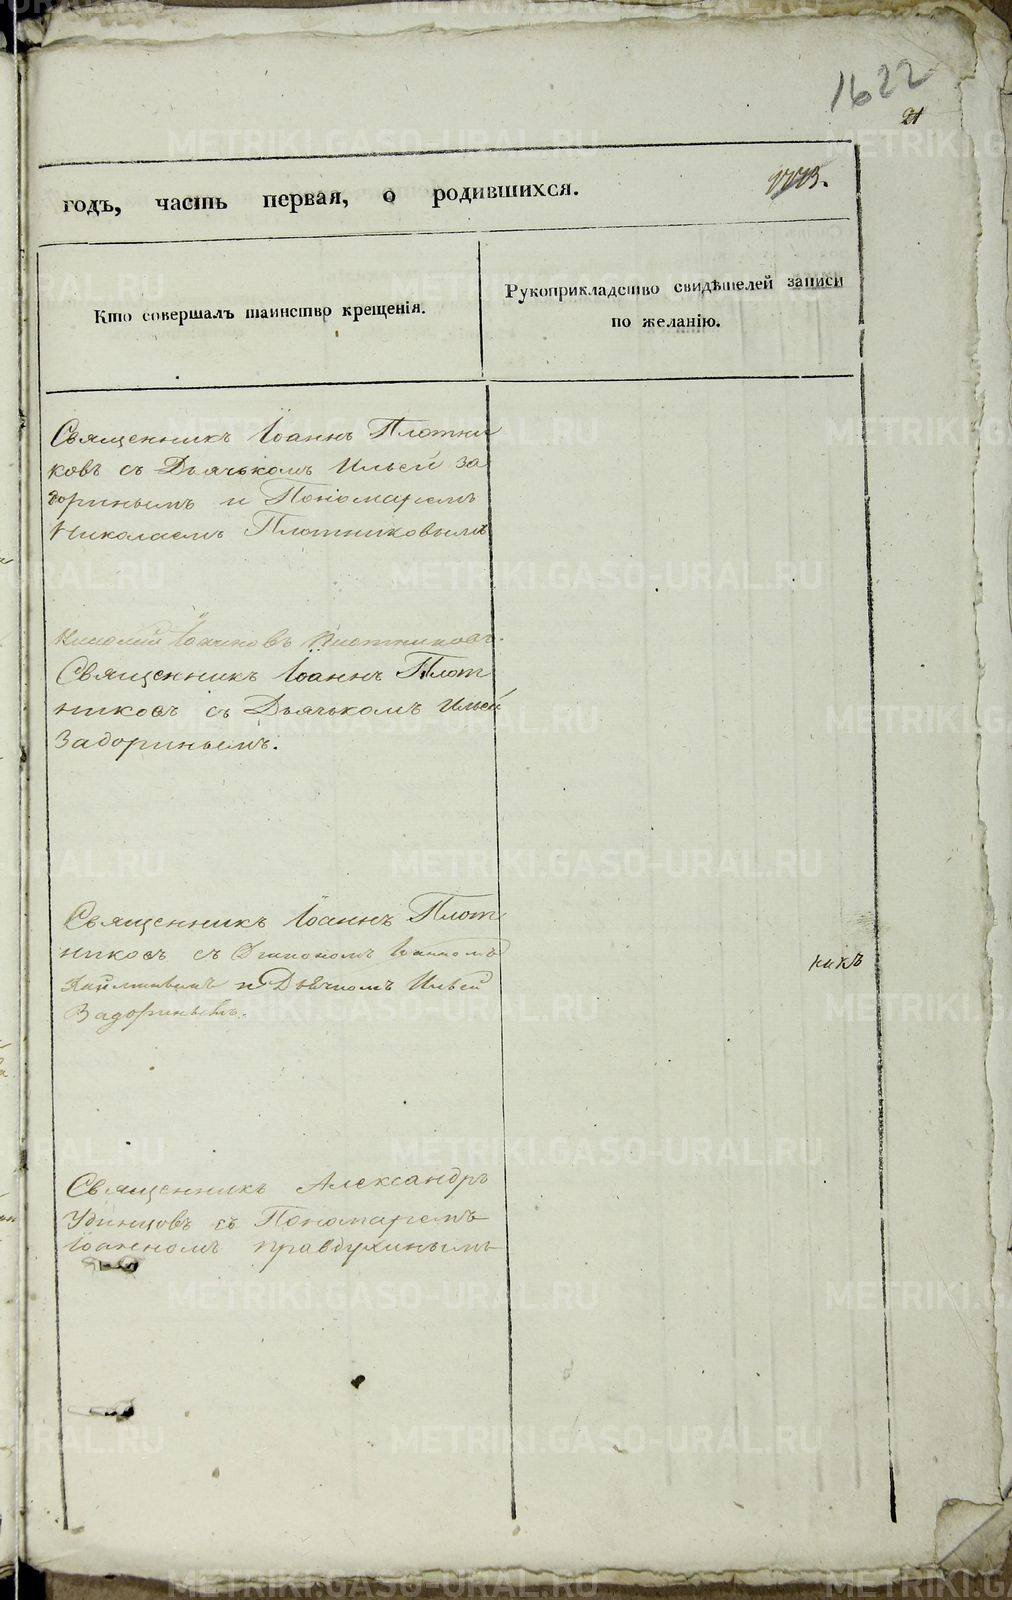 1622
21
годъ, часть первая, о родившихся.
Кто совершалъ таинство крещенія.
Рукоприкладство свидѣтелей записи
по желанію.
Священникъ Іоаннъ Плотни
ковъ съ Дьячькомъ Ильей За
доринымъ и Пономаремъ
Николаемъ Плотниковымъ
Священникъ Іоаннъ Плот
никовъ съ Дьячькомъ Ильей
Задоринымъ.
Священникъ Іоаннъ Плот
никовъ съ Діакономъ Іоанномъ
и Дьячкомъ Ильей
Задоринымъ.
Священникъ Александръ
Удинцовъ съ Пономаремъ
Іоанномъ Правдухинымъ
METRIKI.GASO-URAL.RU